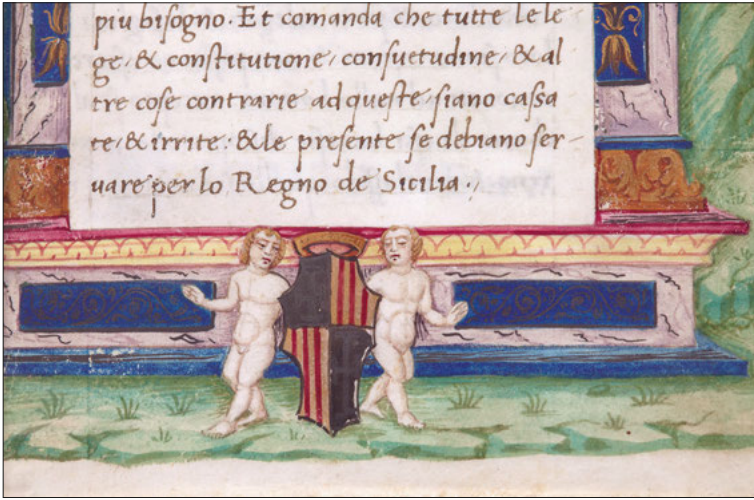 piu bisogno. Et comanda che tutte le le-
ge, & constitutione, consuetudine, & al
tre cose contrarie ad queste, siano cassa
te, & irrite: & le presente se debiano ser-
uare per lo Regno de Sicilia.,